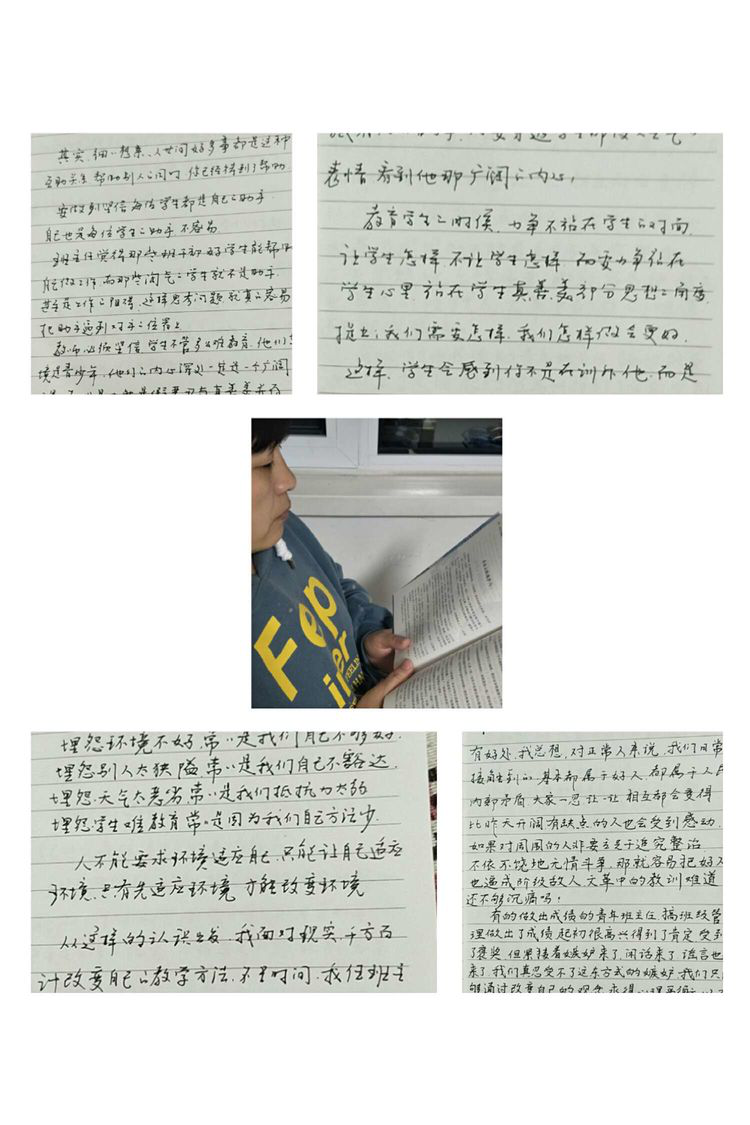 其实,细细想来,人世间好多事都是这种
互助关系 帮助别人之同时 你已经得到了帮助
要做到坚信每位学生都是自己之助手
自己也是每位学生之助手 不容易
班主任觉得那些班干部好学生能帮
自己做工作 而那些淘气之学生就不是助手
甚至是工作之阻碍,这样思考问题 就真容易
把助手逼到对手之位置上
教师必须坚信 学生不管多么难教育,他们
毕竟是青少年,他们之内心深处一定是一个广阔
表情 看到他那广阔之内心,
教育学生之时候,力争不站在学生之对面,
让学生怎样 不让学生怎样 而要力争站在
学生心里 站在学生真善美部分思想之角度
提出:我们需要怎样,我们怎样做会更好.
这样,学生会感到你不是在训斥他,而是
Fop
埋怨环境不好,常常是我们自己不够好.
埋怨别人太狭隘 常常是我们自己不豁达.
埋怨天气太恶劣 常常是我们抵抗力太弱
埋怨学生难教育 常常是因为我们自己方法少.
人不能要求环境适应自己,只能让自己适应
环境,只有先适应环境 才能改变环境
从这样的认识出发,我面对现实,千方百
计改变自己之教学方法,不是时间,我任班主
有好处,我总想,对正常人来说,我们日常
接触到的,基本都属于好人,都属于人民
内部矛盾 大家一忍一让 相互都会变得
比昨天开阔 有缺点的人也会受到感动.
如果对周围的人非要立足于追究整治
不依不饶地无情斗争,那就容易把好人
也逼成阶级敌人 文革中的教训难道
还不够沉痛吗?
有的做出成绩的青年班主任 搞班级管
理做出了成绩 起初很高兴得到了肯定 受到
了褒奖,但紧接着嫉妒来了,闲话来了 谣言也
来了,我们真忍受不了这东方式的嫉妒,我们只
能够通过改变自己的观念